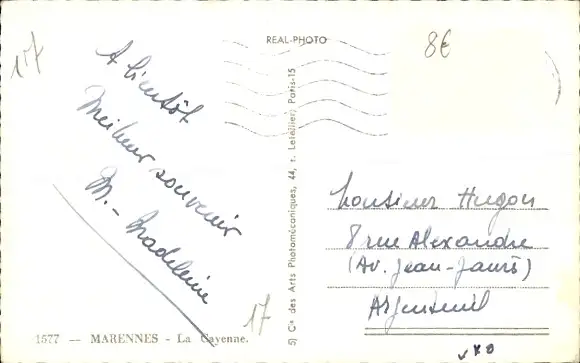 17
REAL-PHOTO
8€
A bientôt
Meilleur souvenir
M. - Madeleine
5) Cie des Arts Photomécaniques, 44, r. Letellier, Paris-15
Monsieur Hugon
8 rue Alexandre
(Av. Jean-Jaurès)
Argenteuil
17
1577 — MARENNES - La Cayenne.